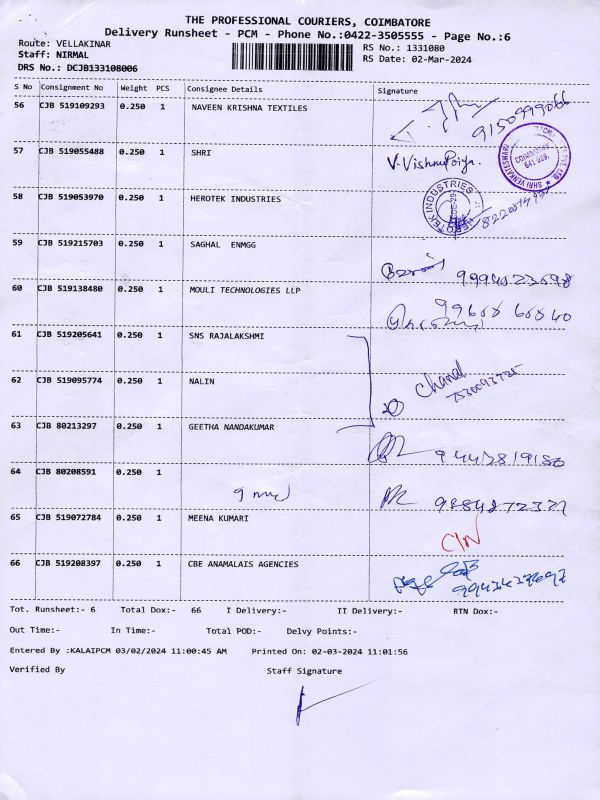 THE PROFESSIONAL COURIERS, COIMBATORE
Delivery Runsheet - PCM - Phone No.:0422-3505555 - Page No.:6
Route: VELLAKINAR
RS No.: 1331080
Staff: NIRMAL
RS Date: 02-Mar-2024
DRS No.: DCJB133108006
S No Consignment No Weight PCS Consignee Details Signature
56 CJB 519109293 0.250 1 NAVEEN KRISHNA TEXTILES
9150999066
57 CJB 519055488 0.250 1 SHRI V. Vishnu Priya.
58 CJB 519053970 0.250 1 HEROTEK INDUSTRIES
59 CJB 519215703 0.250 1 SAGHAL ENMGG
60 CJB 519138480 0.250 1 MOULI TECHNOLOGIES LLP
61 CJB 519205641 0.250 1 SNS RAJALAKSHMI
62 CJB 519095774 0.250 1 NALIN
63 CJB 80213297 0.250 1 GEETHA NANDAKUMAR
9442819180
64 CJB 80208591 0.250 1
65 CJB 519072784 0.250 1 MEENA KUMARI
C/N
66 CJB 519208397 0.250 1 CBE ANAMALAIS AGENCIES
Tot. Runsheet:- 6 Total Dox:- 66 I Delivery:- II Delivery:- RTN Dox:-
Out Time:- In Time:- Total POD:- Delvy Points:-
Entered By :KALAIPCM 03/02/2024 11:00:45 AM Printed On: 02-03-2024 11:01:56
Verified By Staff Signature